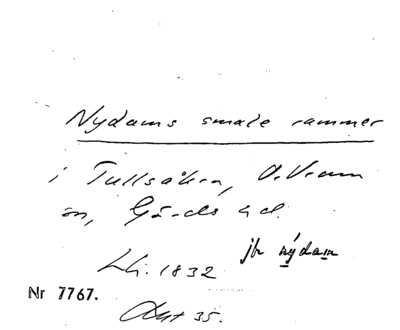 Nydams smale rammer
i Tullsåkra, Ö. Vram
sn, Gärds hd.
Lh. 1832
jfr nýdam
Nr 7767.
Akt 35.